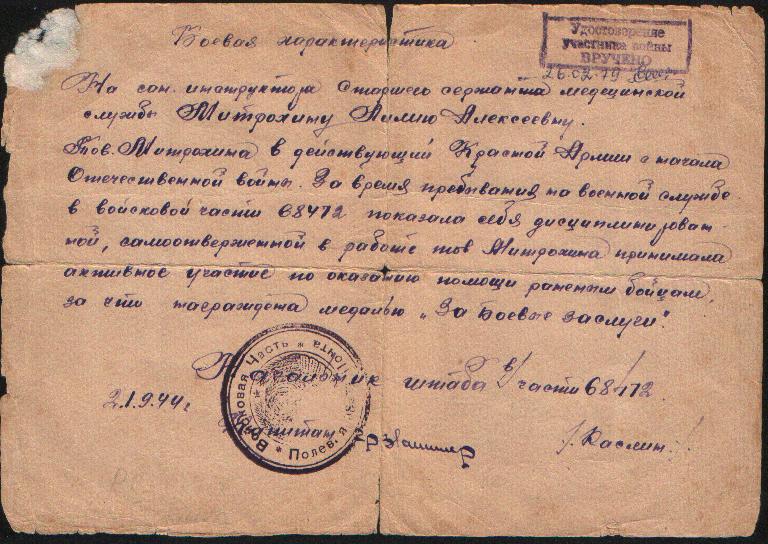 Боевая характеристика
Удостоверение
участника войны
ВРУЧЕНО
26.02.79
На сан. инструктора Старшего сержанта медецинской
службы Митрохину Лилию Алексеевну.
Тов. Митрохина в действующий Красной Армии с начала
Отечественной войны. За время пребывания на военной службе
в войсковой части 68472 показала себя дисциплинирован-
ной, самоотверженной в работе тов Митрохина принимала
активное участие по оказанию помощи раненым бойцам,
за что награждена медалью „За Боевые заслуги".
Начальник штаба в/части 68472
2.1.9.44г
Капитан /Каслин/
Войсковая Часть * Полевая почта *